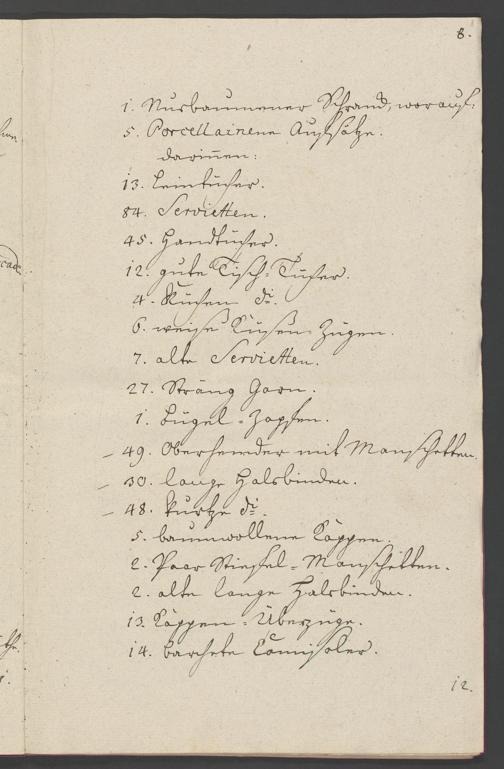 8.
1. Nusbaumener Schranck, worauf:
5. Porcellainene Aufsätze.
darinnen:
13. Leintücher.
84. Servietten.
45. Handtücher.
12. gute Tisch-Tücher.
4. Küchen dº.
6. weise Küsen Zügen.
7. alte Servietten.
27. Sträng Garn.
1. Bügel-Zapfen.
49. Oberhemder mit Manschetten.
30. lange Halsbinden.
48. kurtze dº.
5. baumwollene Kappen.
2. Paar Stiefel-Manschetten.
2. alte lange Halsbinden.
13. Kappen-Überzüge.
14. barchete Camisoler.
12.